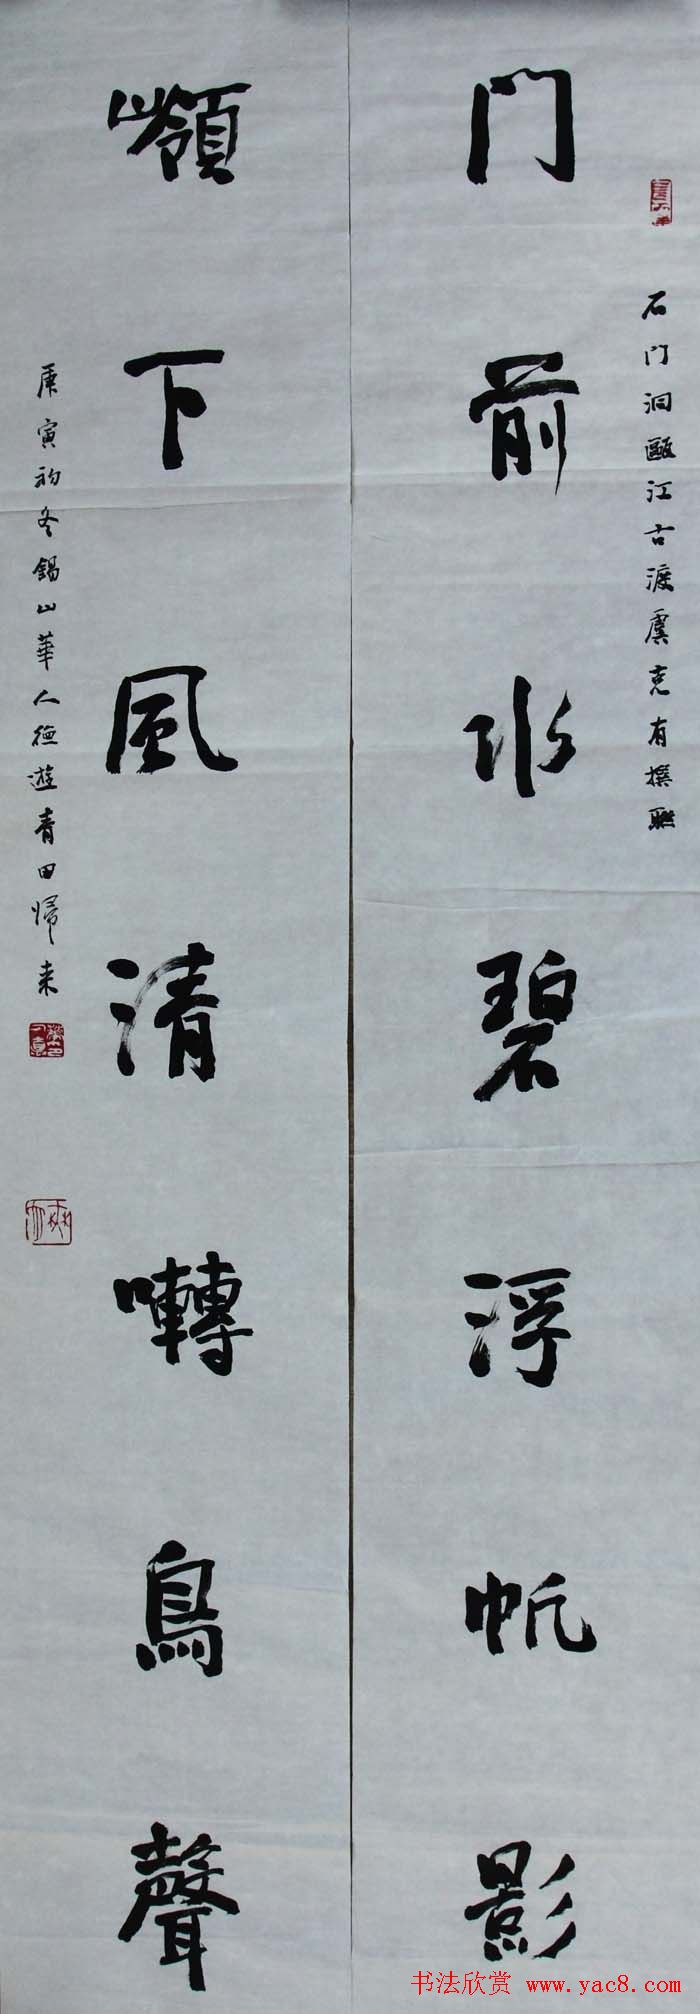 石门洞甌江古渡虞克有撰联
门前水碧浮帆影
嶺下风清囀鳥聲
庚寅初冬錫山華人德遊青田歸来
书法欣赏 www.yac8.com